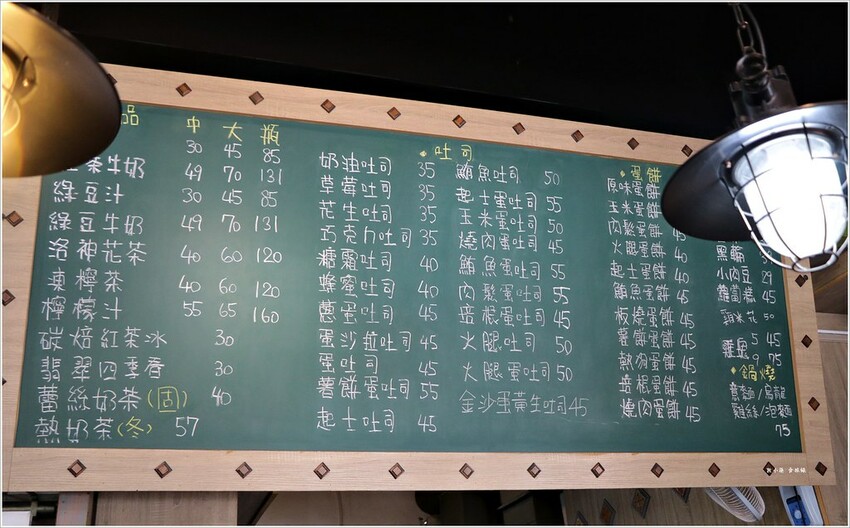 品 中 大 瓶
30 45 85
茶牛奶 49 70 131
綠豆汁 30 45 85
綠豆牛奶 49 70 131
洛神花茶 40 60 120
凍檸茶 40 60 120
檸檬汁 55 65 160
碳焙紅茶冰 30
翡翠四季春 30
蕾絲奶茶(固) 40
熱奶茶(冬) 57
吐司
奶油吐司 35
草莓吐司 35
花生吐司 35
巧克力吐司 35
糖霜吐司 40
蜂蜜吐司 40
蔥蛋吐司 45
蛋沙拉吐司 45
蛋吐司 45
薯餅蛋吐司 55
起士吐司 45
鮪魚吐司 50
起士蛋吐司 55
玉米蛋吐司 50
燒肉蛋吐司 45
鮪魚蛋吐司 55
肉鬆蛋吐司 55
培根蛋吐司 45
火腿吐司 50
火腿蛋吐司 50
金沙蛋黃生吐司 45
蛋餅
原味蛋餅
玉米蛋餅
肉鬆蛋餅 45
火腿蛋餅 40
起士蛋餅 40
鮪魚蛋餅 45
板燒蛋餅 45
薯餅蛋餅 45
熱狗蛋餅 45
培根蛋餅 45
燒肉蛋餅 45
小肉豆 29
蘿蔔糕 45
雞米花 50
雞塊 5 45
9 75
鍋燒
意麵/烏龍
雞絲/泡麵
75